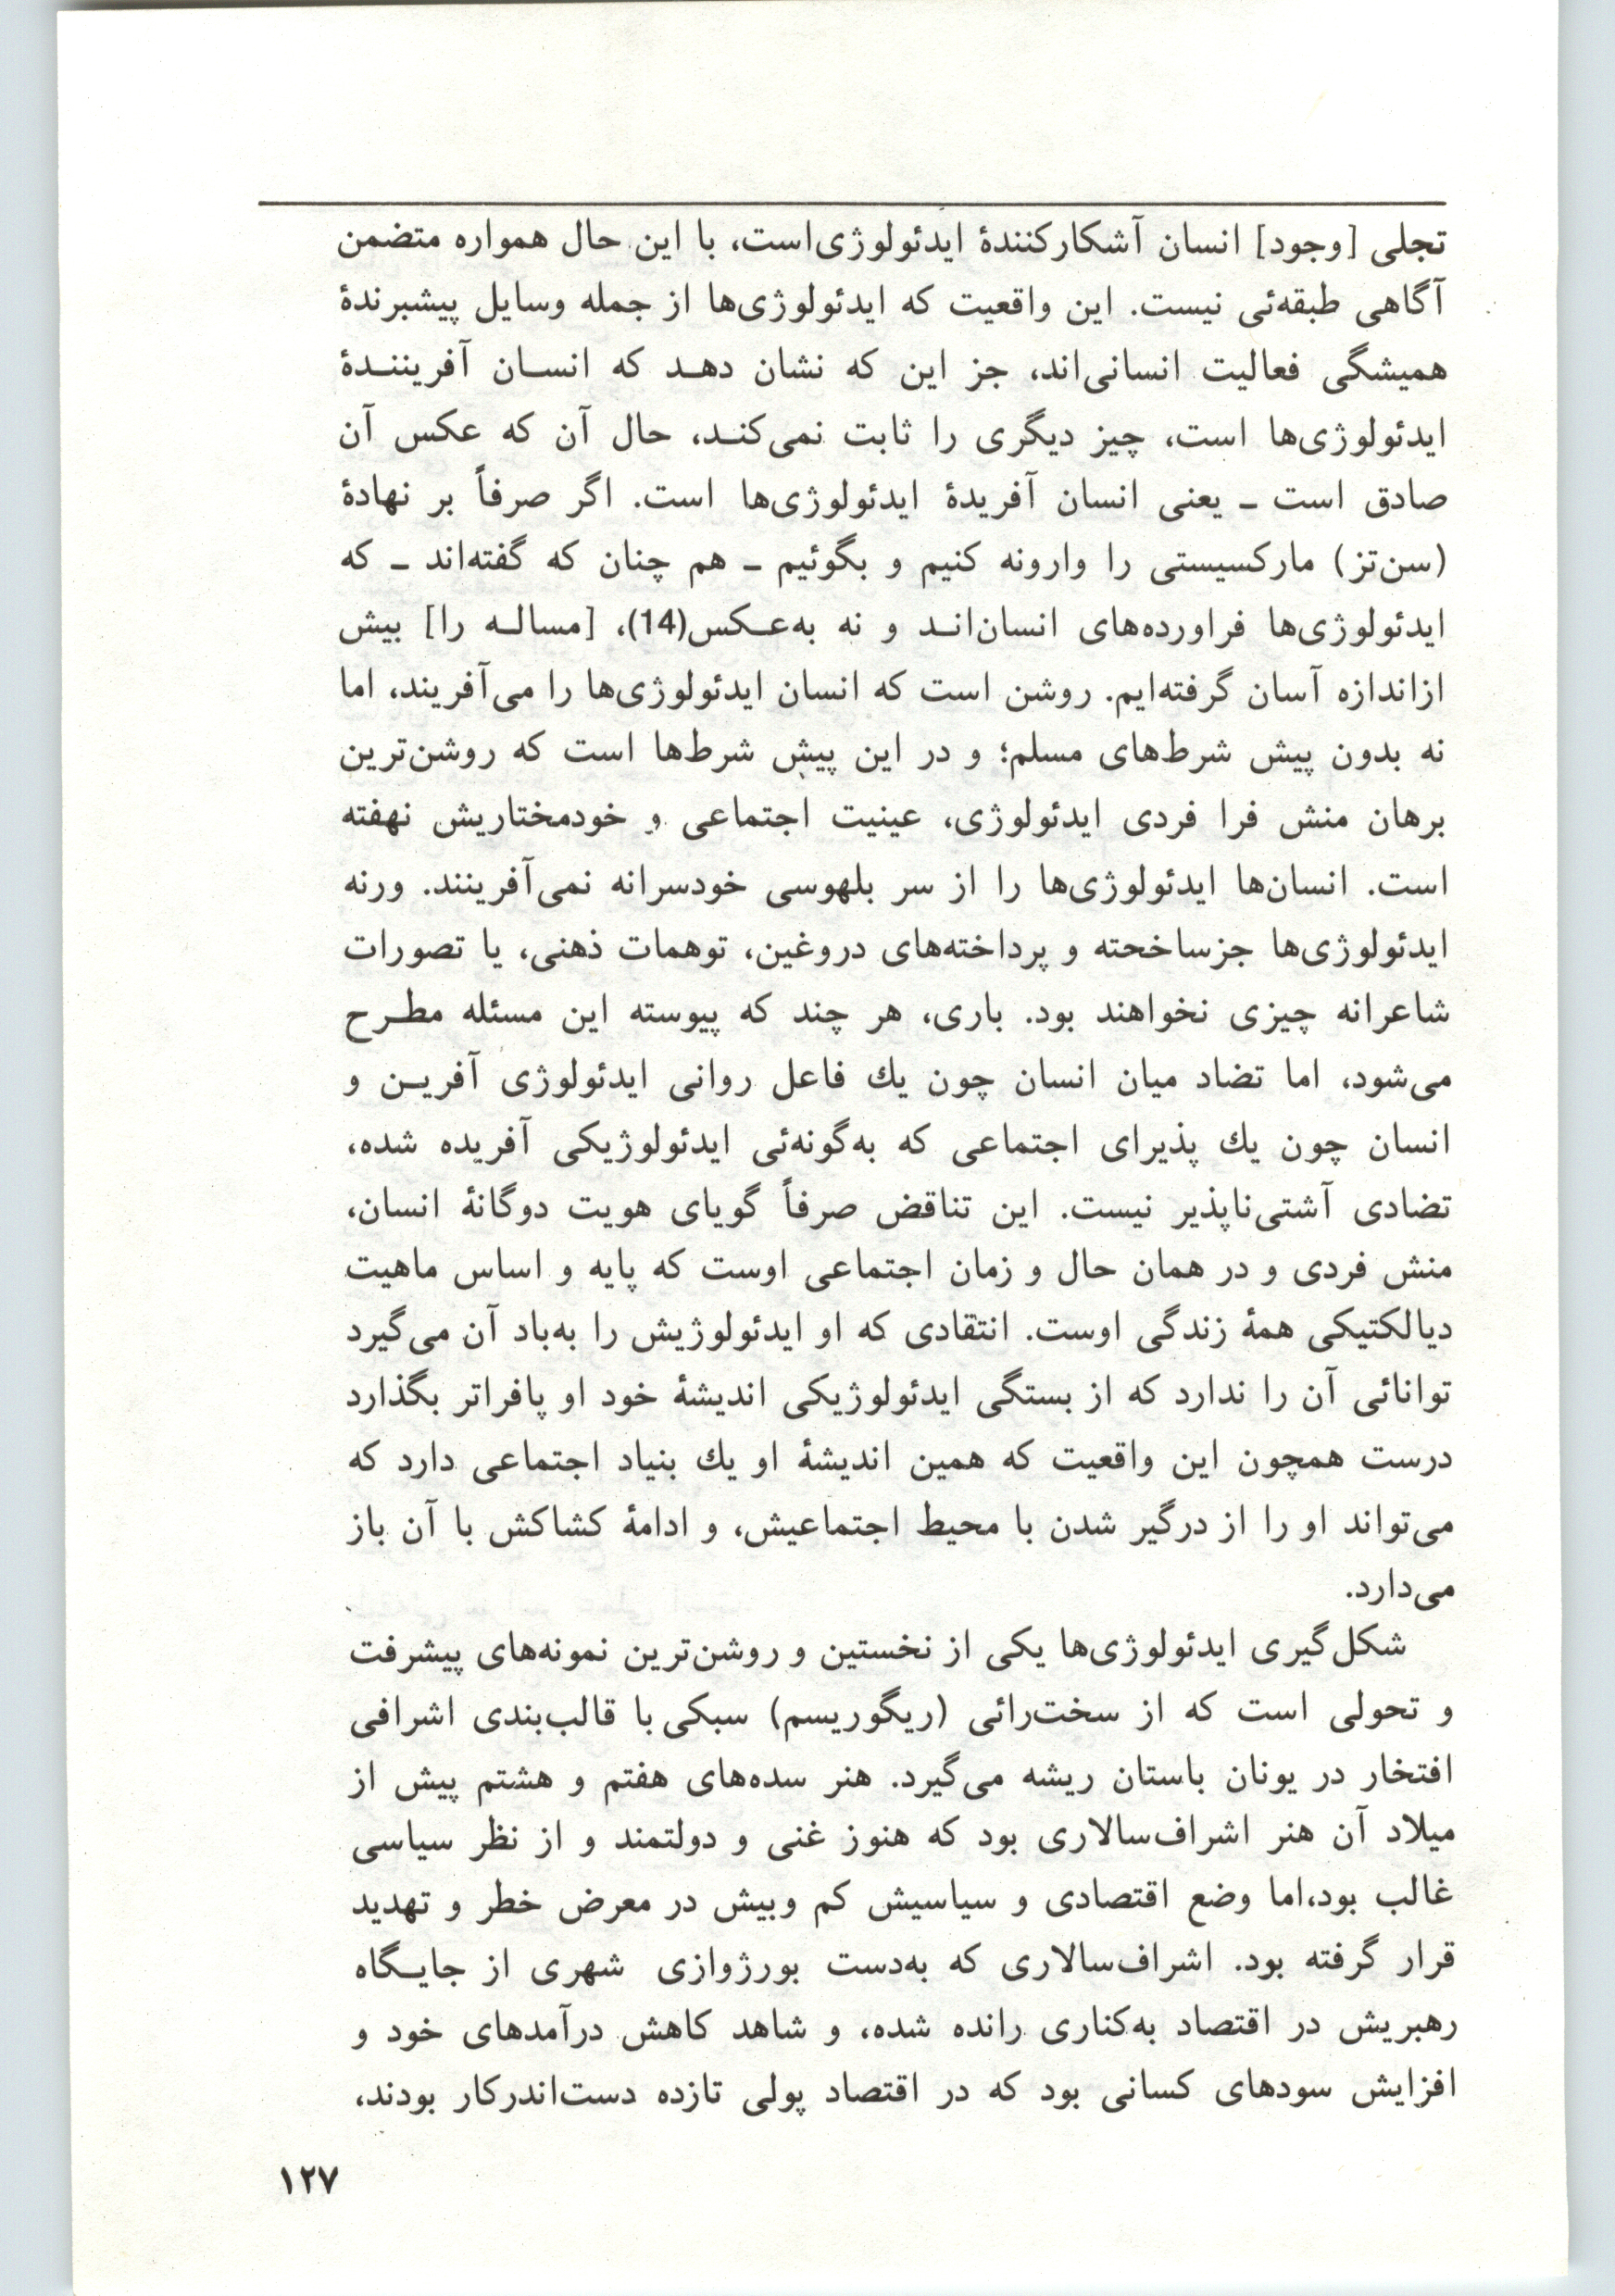 تجلی [وجود] انسان آشکارکنندهٔ ایدئولوژی‌است، با این حال همواره متضمن
آگاهی طبقه‌ئی نیست. این واقعیت که ایدئولوژی‌ها از جمله وسایل پیشبرندهٔ
همیشگی فعالیت انسانی‌اند، جز این که نشان دهـد که انسـان آفریننـدهٔ
ایدئولوژی‌ها است، چیز دیگری را ثابت نمی‌کنـد، حال آن که عکس آن
صادق است ـ یعنی انسان آفریدهٔ ایدئولوژی‌ها است. اگر صرفاً بر نهادهٔ
(سن‌تز) مارکسیستی را وارونه کنیم و بگوئیم ـ هم چنان که گفته‌اند ـ که
ایدئولوژی‌ها فراورده‌های انسان‌انـد و نه به‌عـکس(14)، [مسالـه را] بیش
ازاندازه آسان گرفته‌ایم. روشن است که انسان ایدئولوژی‌ها را می‌آفریند، اما
نه بدون پیش شرط‌های مسلم؛ و در این پیش شرط‌ها است که روشن‌ترین
برهان منش فرا فردی ایدئولوژی، عینیت اجتماعی و خودمختاریش نهفته
است. انسان‌ها ایدئولوژی‌ها را از سر بلهوسی خودسرانه نمی‌آفرینند. ورنه
ایدئولوژی‌ها جزساخحته و پرداخته‌های دروغین، توهمات ذهنی، یا تصورات
شاعرانه چیزی نخواهند بود. باری، هر چند که پیوسته این مسئله مطـرح
می‌شود، اما تضاد میان انسان چون یك فاعل روانی ایدئولوژی آفریـن و
انسان چون یك پذیرای اجتماعی که به‌گونه‌ئی ایدئولوژیکی آفریده شده،
تضادی آشتی‌ناپذیر نیست. این تناقض صرفاً گویای هویت دوگانهٔ انسان،
منش فردی و در همان حال و زمان اجتماعی اوست که پایه و اساس ماهیت
دیالکتیکی همهٔ زندگی اوست. انتقادی که او ایدئولوژیش را به‌باد آن می‌گیرد
توانائی آن را ندارد که از بستگی ایدئولوژیکی اندیشهٔ خود او پافراتر بگذارد
درست همچون این واقعیت که همین اندیشهٔ او یك بنیاد اجتماعی دارد که
می‌تواند او را از درگیر شدن با محیط اجتماعیش، و ادامهٔ کشاکش با آن باز
می‌دارد.
شکل‌گیری ایدئولوژی‌ها یکی از نخستین و روشن‌ترین نمونه‌های پیشرفت
و تحولی است که از سخت‌رائی (ریگوریسم) سبکی با قالب‌بندی اشرافی
افتخار در یونان باستان ریشه می‌گیرد. هنر سده‌های هفتم و هشتم پیش از
میلاد آن هنر اشراف‌سالاری بود که هنوز غنی و دولتمند و از نظر سیاسی
غالب بود،اما وضع اقتصادی و سیاسیش کم وبیش در معرض خطر و تهدید
قرار گرفته بود. اشراف‌سالاری که به‌دست بورژوازی شهری از جایـگاه
رهبریش در اقتصاد به‌کناری رانده شده، و شاهد کاهش درآمدهای خود و
افزایش سودهای کسانی بود که در اقتصاد پولی تازده دست‌اندرکار بودند،
۱۲۷